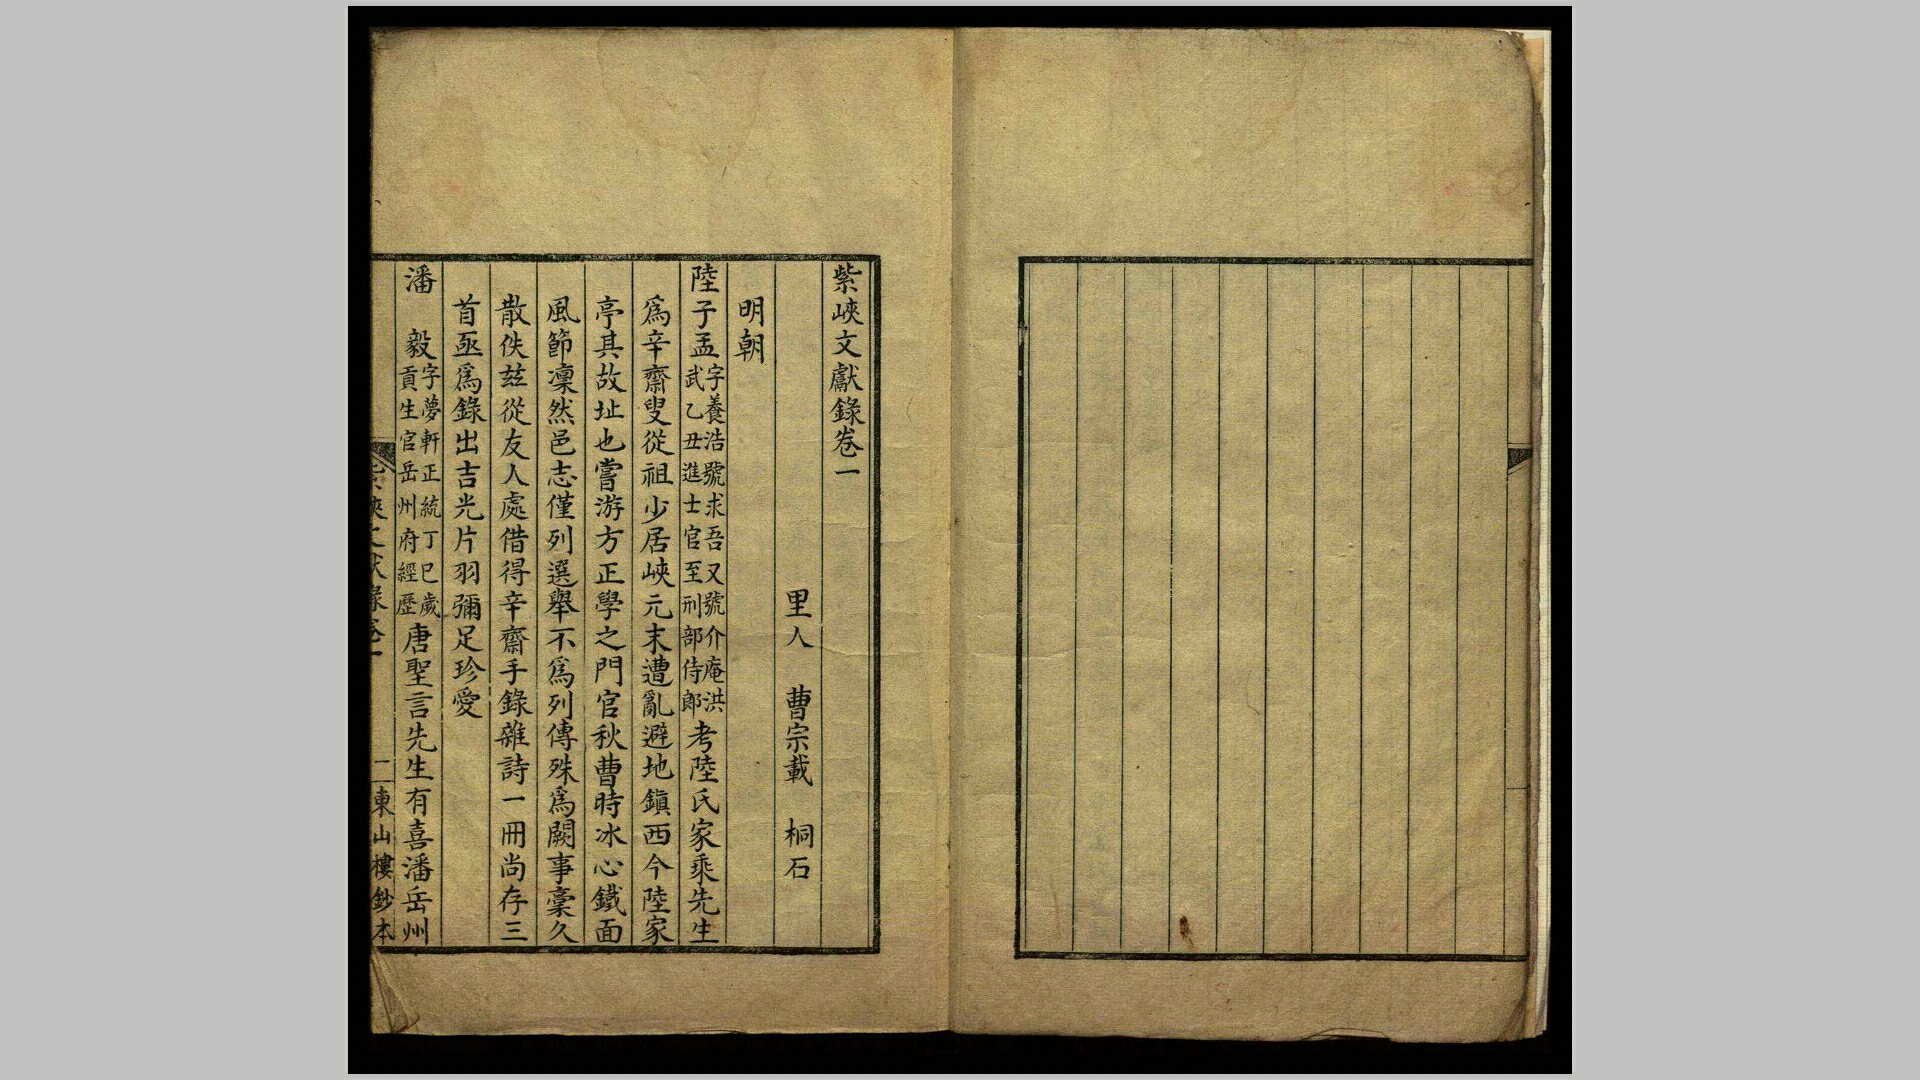 紫峽文獻錄卷一
里人 曹宗載 桐石
明朝
陸子孟字養浩號求吾又號介庵洪武乙丑進士官至刑部侍郎考陸氏家乘先生
爲辛齋叟從祖少居峽元末遭亂避地鎮西今陸家
亭其故址也嘗游方正學之門官秋曹時冰心鐵面
風節凜然邑志僅列選舉不爲列傳殊爲闕事稾久
散佚玆從友人處借得辛齋手錄雜詩一冊尚存三
首亟爲錄出吉光片羽彌足珍愛
潘 毅字夢軒正統丁巳歲貢生官岳州府經歷唐聖言先生有喜潘岳州
紫峽文獻錄卷一 二 東山樓鈔本